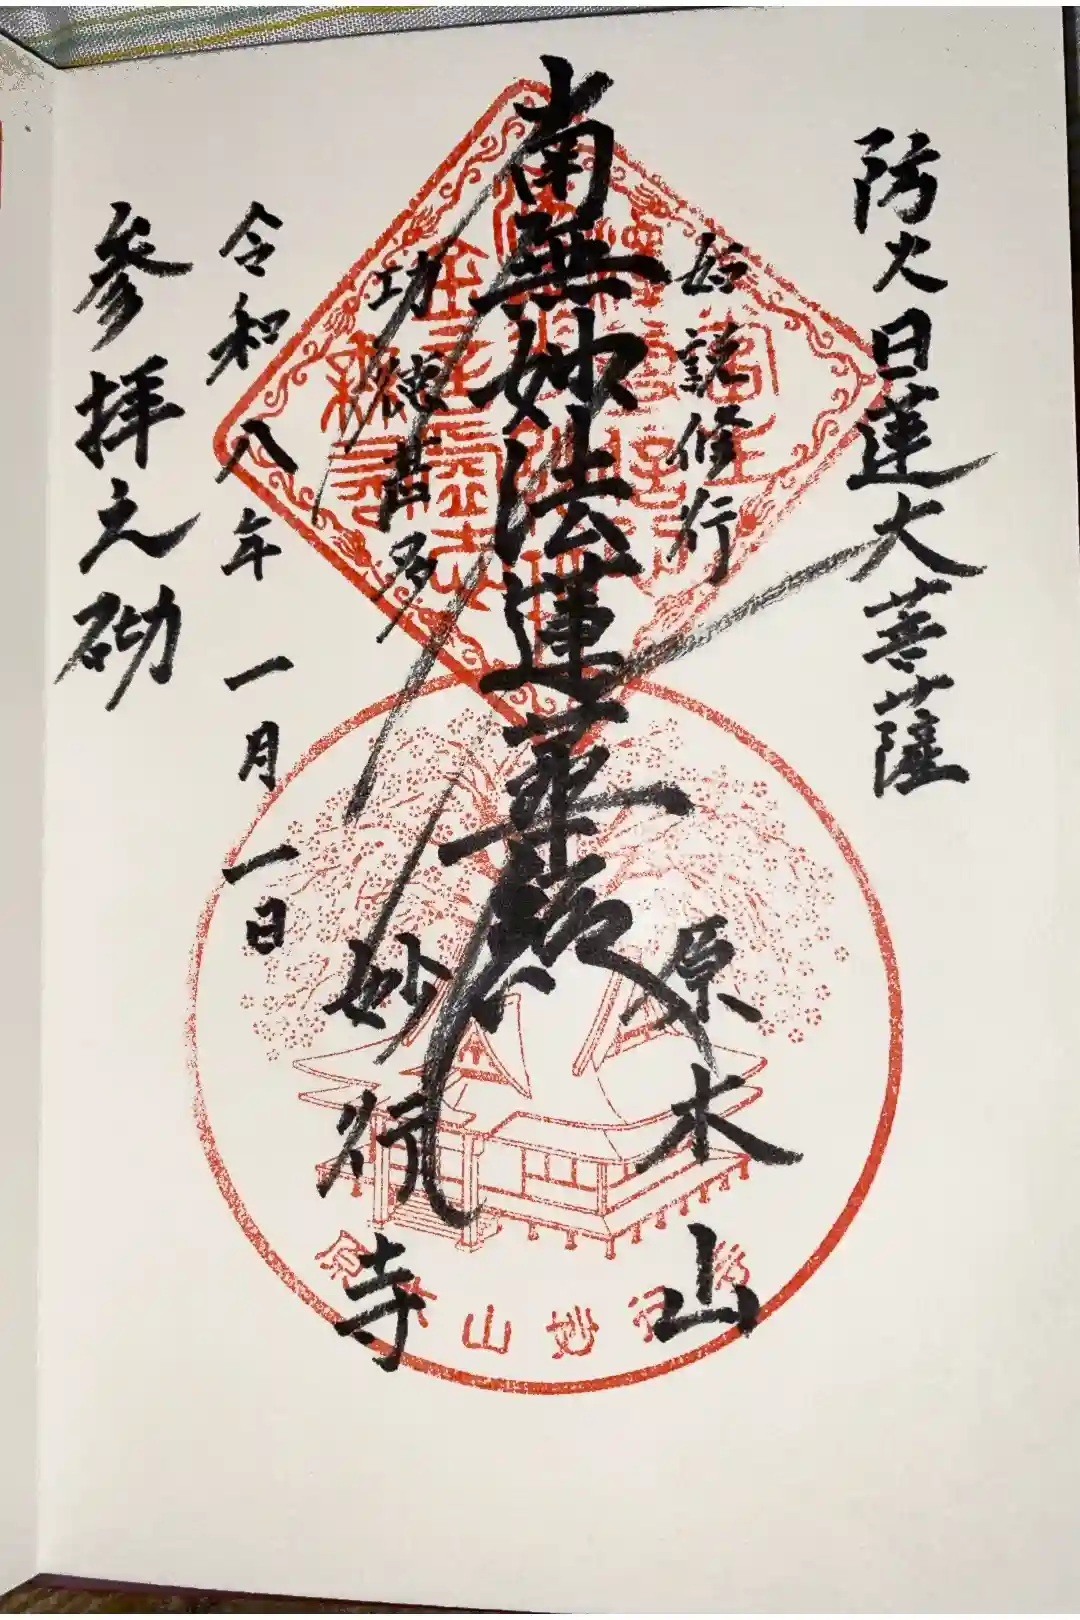 防火日蓮大菩薩
如説修行
南無妙法蓮華経
功徳甚多
原木山
妙行寺
令和八年一月一日
参拝之砌
原木山妙行寺